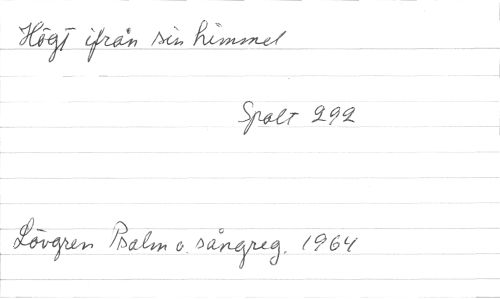 Högt ifrån sin himmel
Spalt 292
Lövgren Psalm o. sångreg. 1964